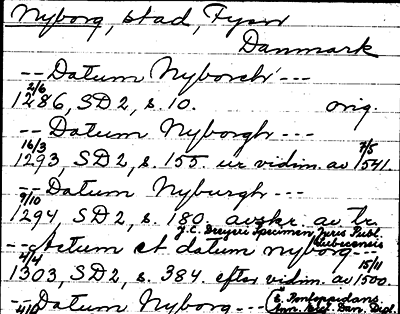 Nyborg, stad, Fyen
Danmark
-- Datum Nyborch ---
2/6
1286, SD 2, s. 10. orig.
-- Datum Nyborgh ---
16/3 7/5
1293, SD 2, s. 155 ur vidim. av 1541.
-- Datum Nyburgh ---
9/10
1294, SD 2, s. 180. avskr. av tr.
J.C. Dreyeri Specimen Juris Publ.
Lubecensis
-- Actum et datum nyborg ---
4/4 15/11
1303, SD 2, s. 384. efter vidim. av 1500.
-- Datum Nyborg --- (E. Pontoppidans
4/10 Ann. Eccl. Dan. Dipl.